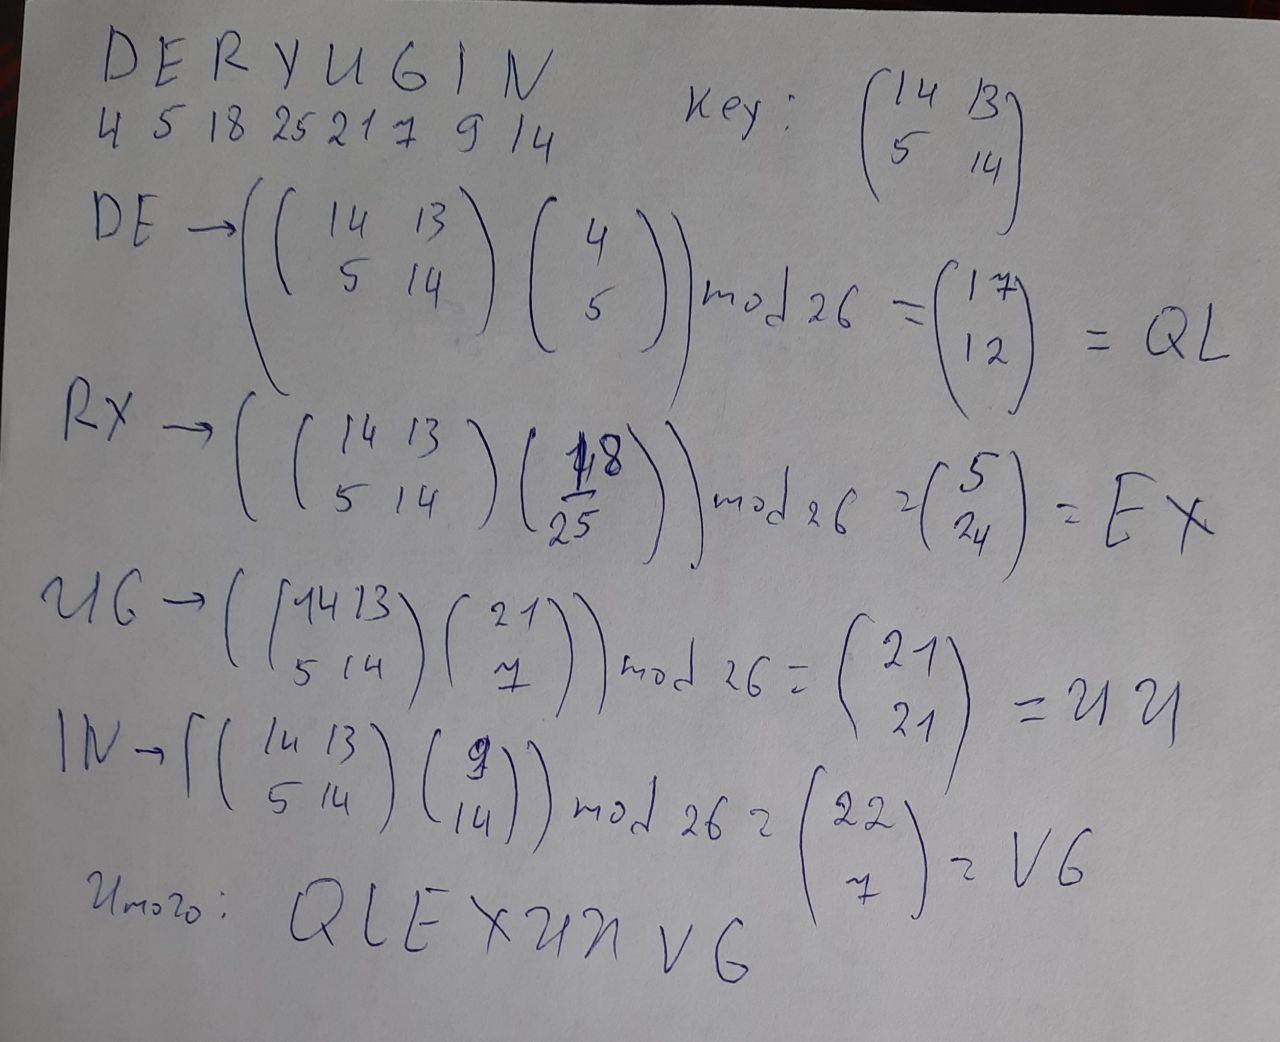 DERYUGIN
4 5 18 25 21 7 9 14
Key: (14 13
5 14)
DE → ((14 13
5 14) (4
5)) mod 26 = (17
12) = QL
RY → ((14 13
5 14) (18
25)) mod 26 = (5
24) = EX
UG → ((14 13
5 14) (21
7)) mod 26 = (21
21) = UU
IN → ((14 13
5 14) (9
14)) mod 26 = (22
7) = VG
Итого: QLEXUUVG